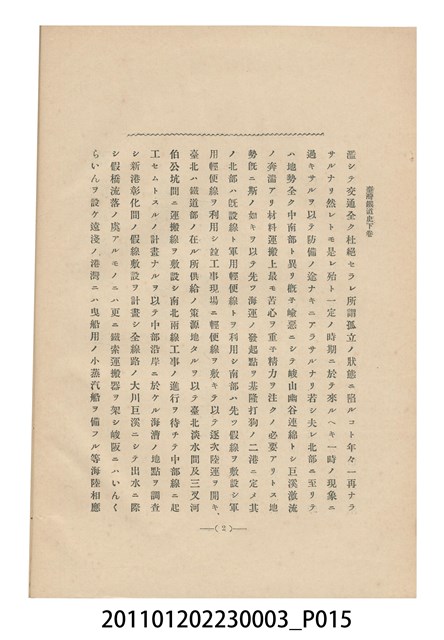 臺灣鐵道史下卷
濫シテ交通全ク杜絕セラレ所謂孤立ノ狀態ニ陷ルコト年々一再ナラ
サルナリ然レトモ是レ殆ト一定ノ時期ニ於テ來ルヘキ一時ノ現象ニ
過キサルヲ以テ防備ノ途ナキニアラサルナリ若シ夫レ北部ニ至リテ
ハ地勢全ク中南部ト異リ槪子喻惡ニシテ峻山幽谷連綿トシ巨溪激流
ノ奔湍アリ材料運搬上最モ苦心ヲ重子精力ヲ注クノ必要アリトス地
勢旣ニ斯ノ如キヲ以テ先ツ海運ノ發起點ヲ基隆打狗ノ二港ニ定メ其
ノ北部ハ旣設線ト軍用輕便線トヲ利用シ南部ハ先ツ假線ヲ敷設シ軍
用輕便線ヲ利用シ竣工事現場ニ輕便線ヲ敷キ以テ逐次陸運ヲ開キ
臺北ハ鐵道部ノ在ル所供給ノ策源地タルヲ以テ臺北淡水間及三叉河
伯公坑間ニ運搬線ヲ敷設シ南北兩線工事ノ進行ヲ待チテ中部線ニ起
工セムトスルノ計畫ナルヲ以テ中部沿岸ニ於ケル海漕ノ地點ヲ調査
シ新港彰化間ノ假線敷設ヲ計畫シ全線路ノ大川巨溪ニシテ出水ニ際
シ假橋流落ノ虞アルモノニハ更ニ鐵索運搬器ヲ架シ峻阪ニハいんく
らいんヲ設ケ遠淺ノ港灣ニハ曳船用ノ小蒸汽船ヲ備フル等海陸相應
(2)
201101202230003_P015